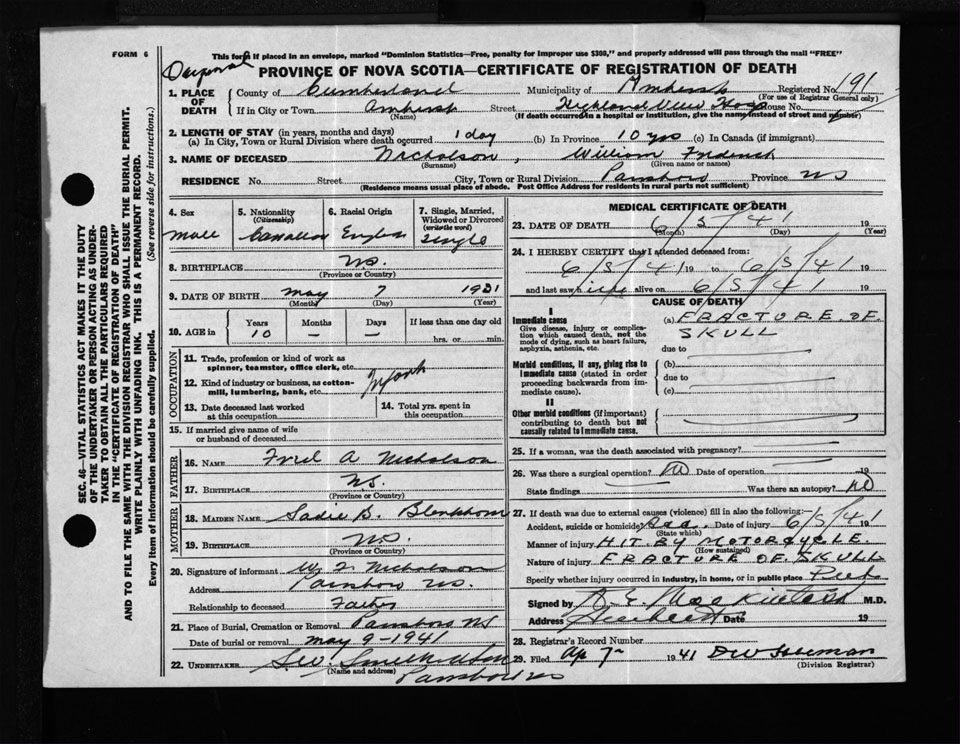 FORM 6
This form if placed in an envelope, marked "Dominion Statistics—Free, penalty for improper use $300," and properly addressed will pass through the mail "FREE"
PROVINCE OF NOVA SCOTIA—CERTIFICATE OF REGISTRATION OF DEATH
1. PLACE OF DEATH County of Cumberland Municipality of Amherst Registered No. 191
(For use of Registrar General only)
If in City or Town Amherst Street Highland View Hosp House No.
(Name) (If death occurred in a hospital or institution, give the name instead of street and number)
2. LENGTH OF STAY (in years, months and days)
(a) In City, Town or Rural Division where death ocurred 1 day (b) In Province 10 yrs (c) In Canada (if immigrant)
3. NAME OF DECEASED Nicholson, William Frederick
(Surname) (Given name or names)
RESIDENCE No. Street City, Town or Rural Division Parrsboro Province NS
(Residence means usual place of abode. Post Office Address for residents in rural parts not sufficient)
4. Sex 5. Nationality (Citizenship) 6. Racial Origin 7. Single, Married, Widowed or Divorced (write the word)
Male Canadian English Single
8. BIRTHPLACE NS.
(Province or Country)
9. DATE OF BIRTH May 7 1931
(Month) (Day) (Year)
10. AGE in Years Months Days If less than one day old
10 — — hrs. or min.
OCCUPATION
11. Trade, profession or kind of work as spinner, teamster, office clerk, etc.
12. Kind of industry or business, as cotton-mill, lumbering, bank, etc.
13. Date deceased last worked at this occupation 14. Total yrs. spent in this occupation
15. If married give name of wife or husband of deceased
FATHER
16. NAME Fred A Nicholson
17. BIRTHPLACE NS.
(Province or Country)
MOTHER
18. MAIDEN NAME Sadie B. Blenkhorn
19. BIRTHPLACE NS.
(Province or Country)
20. Signature of informant Nicholson
Address Parrsboro NS.
Relationship to deceased Father
21. Place of Burial, Cremation or Removal Parrsboro NS
Date of burial or removal May 9-1941
22. UNDERTAKER
(Name and address)
Parrsboro NS
MEDICAL CERTIFICATE OF DEATH
23. DATE OF DEATH 6/5/41 19
(Month) (Day) (Year)
24. I HEREBY CERTIFY that I attended deceased from:
6/5/41 19 to 6/5/41 19
and last saw h alive on 6/5/41 19
CAUSE OF DEATH
I
Immediate cause (a) FRACTURE OF SKULL
Give disease, injury or complication which caused death, not the mode of dying, such as heart failure, asphyxia, asthenia, etc.
due to
Morbid conditions, if any, giving rise to immediate cause (stated in order proceeding backwards from immediate cause).
(b)
due to
(c)
II
Other morbid conditions (if important) contributing to death but not causally related to immediate cause.
25. If a woman, was the death associated with pregnancy?
26. Was there a surgical operation? No Date of operation 19
State findings Was there an autopsy? No
27. If death was due to external causes (violence) fill in also the following:—
Accident, suicide or homicide? Acc. Date of injury 6/5/41 19
(State which)
Manner of injury HIT BY MOTORCYCLE.
(How sustained)
Nature of injury FRACTURE OF SKULL
Specify whether injury occurred in industry, in home, or in public place
Signed by M.D.
Address Date 19
28. Registrar's Record Number
29. Filed 1941
(Division Registrar)
SEC. 46—VITAL STATISTICS ACT MAKES IT THE DUTY
OF THE UNDERTAKER OR PERSON ACTING AS UNDERTAKER TO OBTAIN ALL THE PARTICULARS REQUIRED
IN THE "CERTIFICATE OF REGISTRATION OF DEATH"
AND TO FILE THE SAME WITH THE DIVISION REGISTRAR WHO SHALL ISSUE THE BURIAL PERMIT.
WRITE PLAINLY WITH UNFADING INK. THIS IS A PERMANENT RECORD.
Every item of information should be carefully supplied. (See reverse side for instructions.)